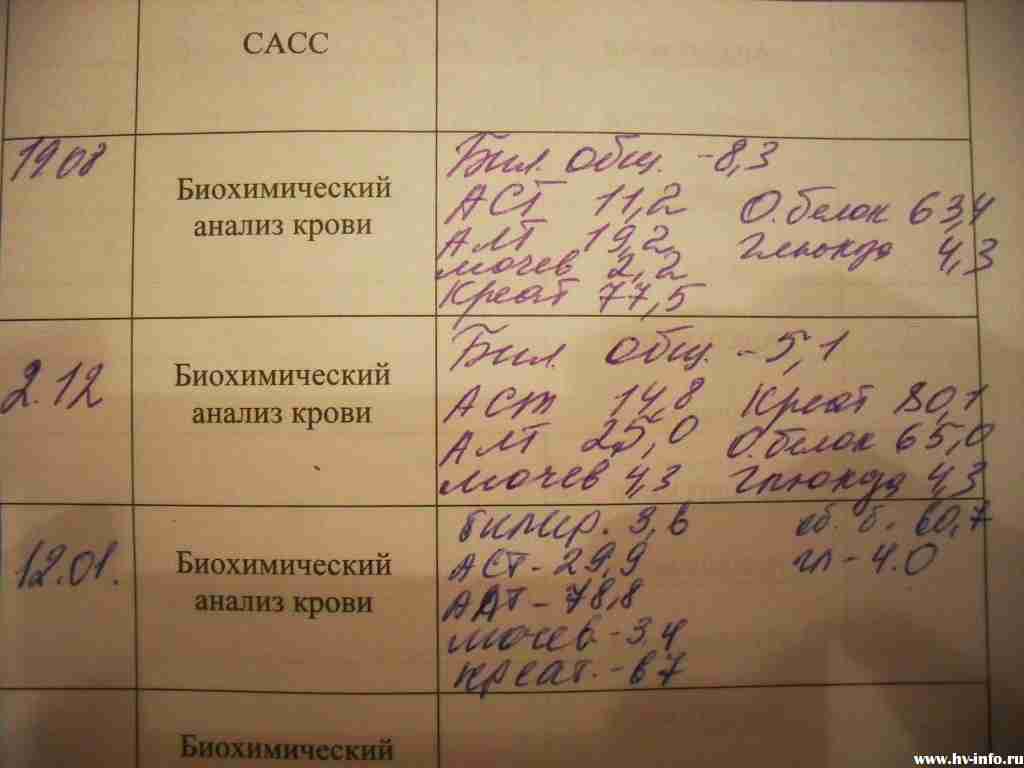 САСС
19.08
Биохимический
анализ крови
Бил. общ. -8,3
АСТ 11,2 О.белок 63,4
АЛТ 19,2 Глюкоза 4,3
Мочев 2,2
Креат 77,5
2.12
Биохимический
анализ крови
Бил. общ. -5,1
АСТ 14,8 Креат 80,1
АЛТ 25,0 О.белок 65,0
Мочев 4,3 Глюкоза 4,3
12.01.
Биохимический
анализ крови
билир. 3,6 об. б. 60,7
АСТ - 29,9 гл - 4.0
АЛТ - 78,8
мочев - 3,4
креат. - 67
Биохимический
www.hv-info.ru